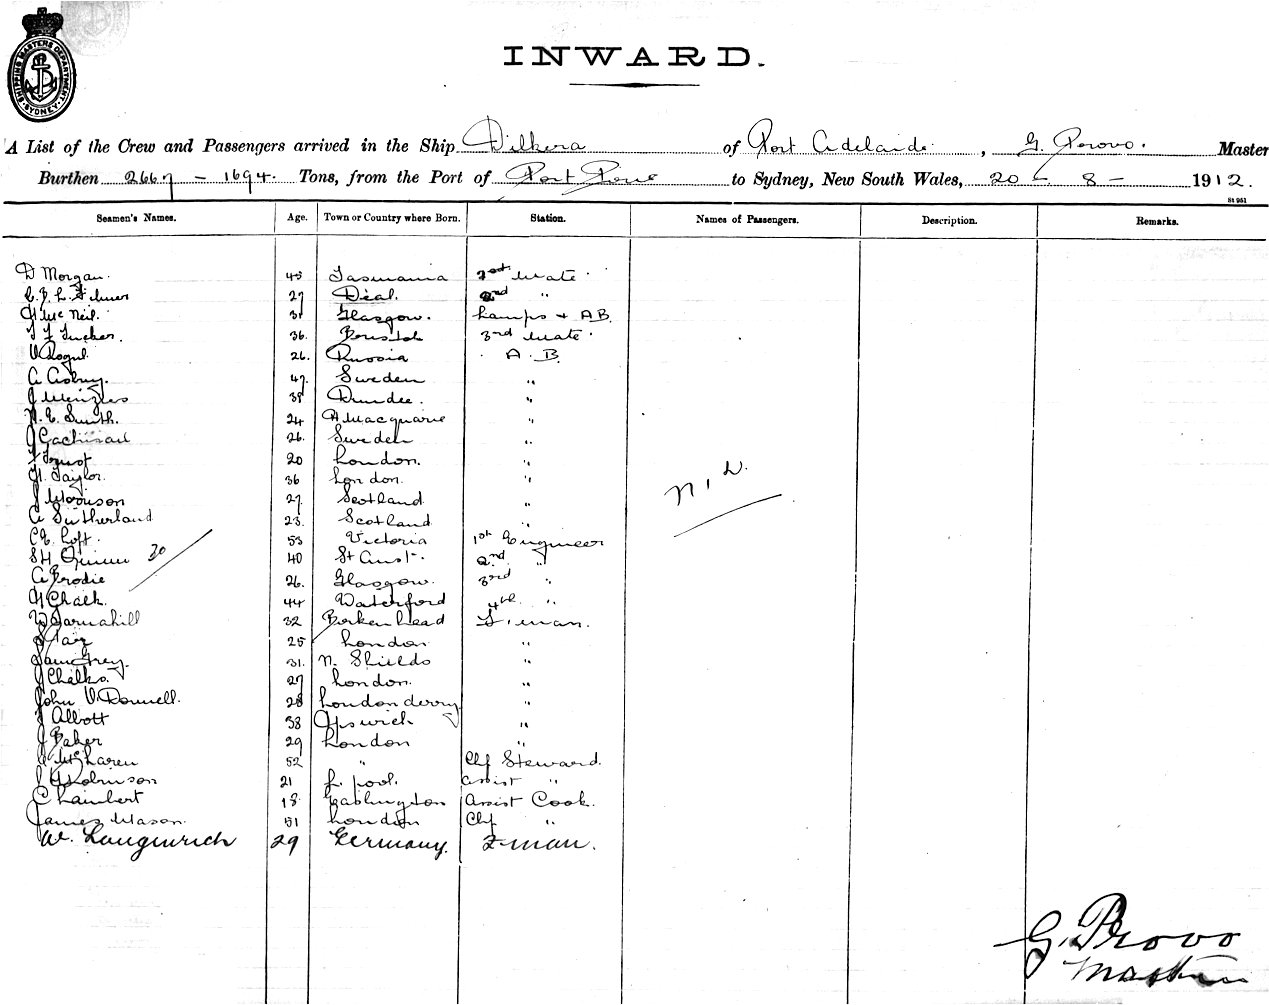 SHIPPING MASTERS DEPARTMENT SYDNEY
INWARD.
A List of the Crew and Passengers arrived in the Ship Dilkera of Port Adelaide, G. Provo. Master
Burthen 2667 - 1694. Tons, from the Port of Port Pirie to Sydney, New South Wales, 20 - 8 - 1912.
St 951
Seamen's Names. Age. Town or Country where Born. Station. Names of Passengers. Description. Remarks.
D Morgan. Tasmania Mate
27 Deal. "
H McNeil. Glasgow. Lamps + AB.
T F Tucker. 36. Bristol 3rd Mate.
26. Russia A.B.
47. Sweden "
J Menzies 38 Dundee. "
H. E. Smith. 24 Macquarie "
26. Sweden "
20 London. "
H. Taylor. 36 London. "
J Morrison 27. Scotland "
A Sutherland 23. Scotland "
53 Victoria 1st Engineer
S H Quinn 40 St 2nd "
30
A Brodie 26. Glasgow. 3rd "
H Chalk. 44 Waterford 4th "
W Barnahill 32 Berkenhead F. man.
25 London "
Grey. 31. N. Shields "
J Chalks. 27 London. "
John 28 Londonderry "
J Abbott 38 Ipswich "
J Baker 29 London "
52 " Chf Steward.
J H Robinson 21 L. pool. Assist "
C Lambert 18. Assist Cook.
James Mason. 51 London Chf "
W. 29 Germany. F-man.
N.I.L.
G. Provo
Master